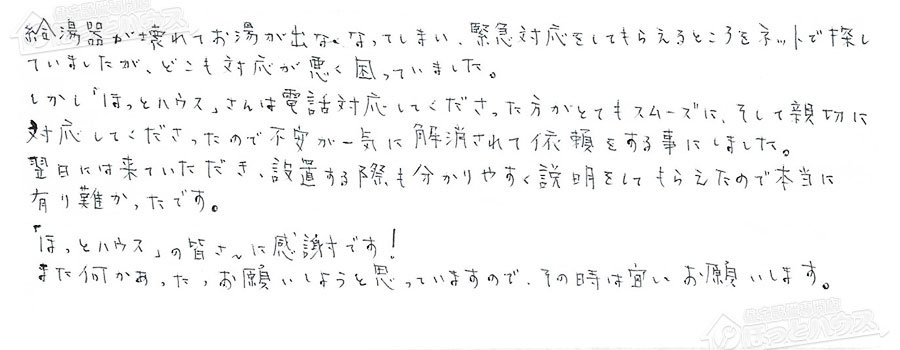 給湯器が壊れてお湯が出なくなってしまい、緊急対応をしてもらえるところをネットで探し
ていましたが、どこも対応が悪く困っていました。
しかし「ほっとハウス」さんは電話対応してくださった方がとてもスムーズに、そして親切に
対応してくださったので不安が一気に解消されて依頼をする事にしました。
翌日には来ていただき、設置する際も分かりやすく説明をしてもらえたので本当に
有り難かったです。
「ほっとハウス」の皆さんに感謝です！
また何かあったらお願いしようと思っていますので、その時は宜しくお願いします。
住宅設備専門店
ほっとハウス